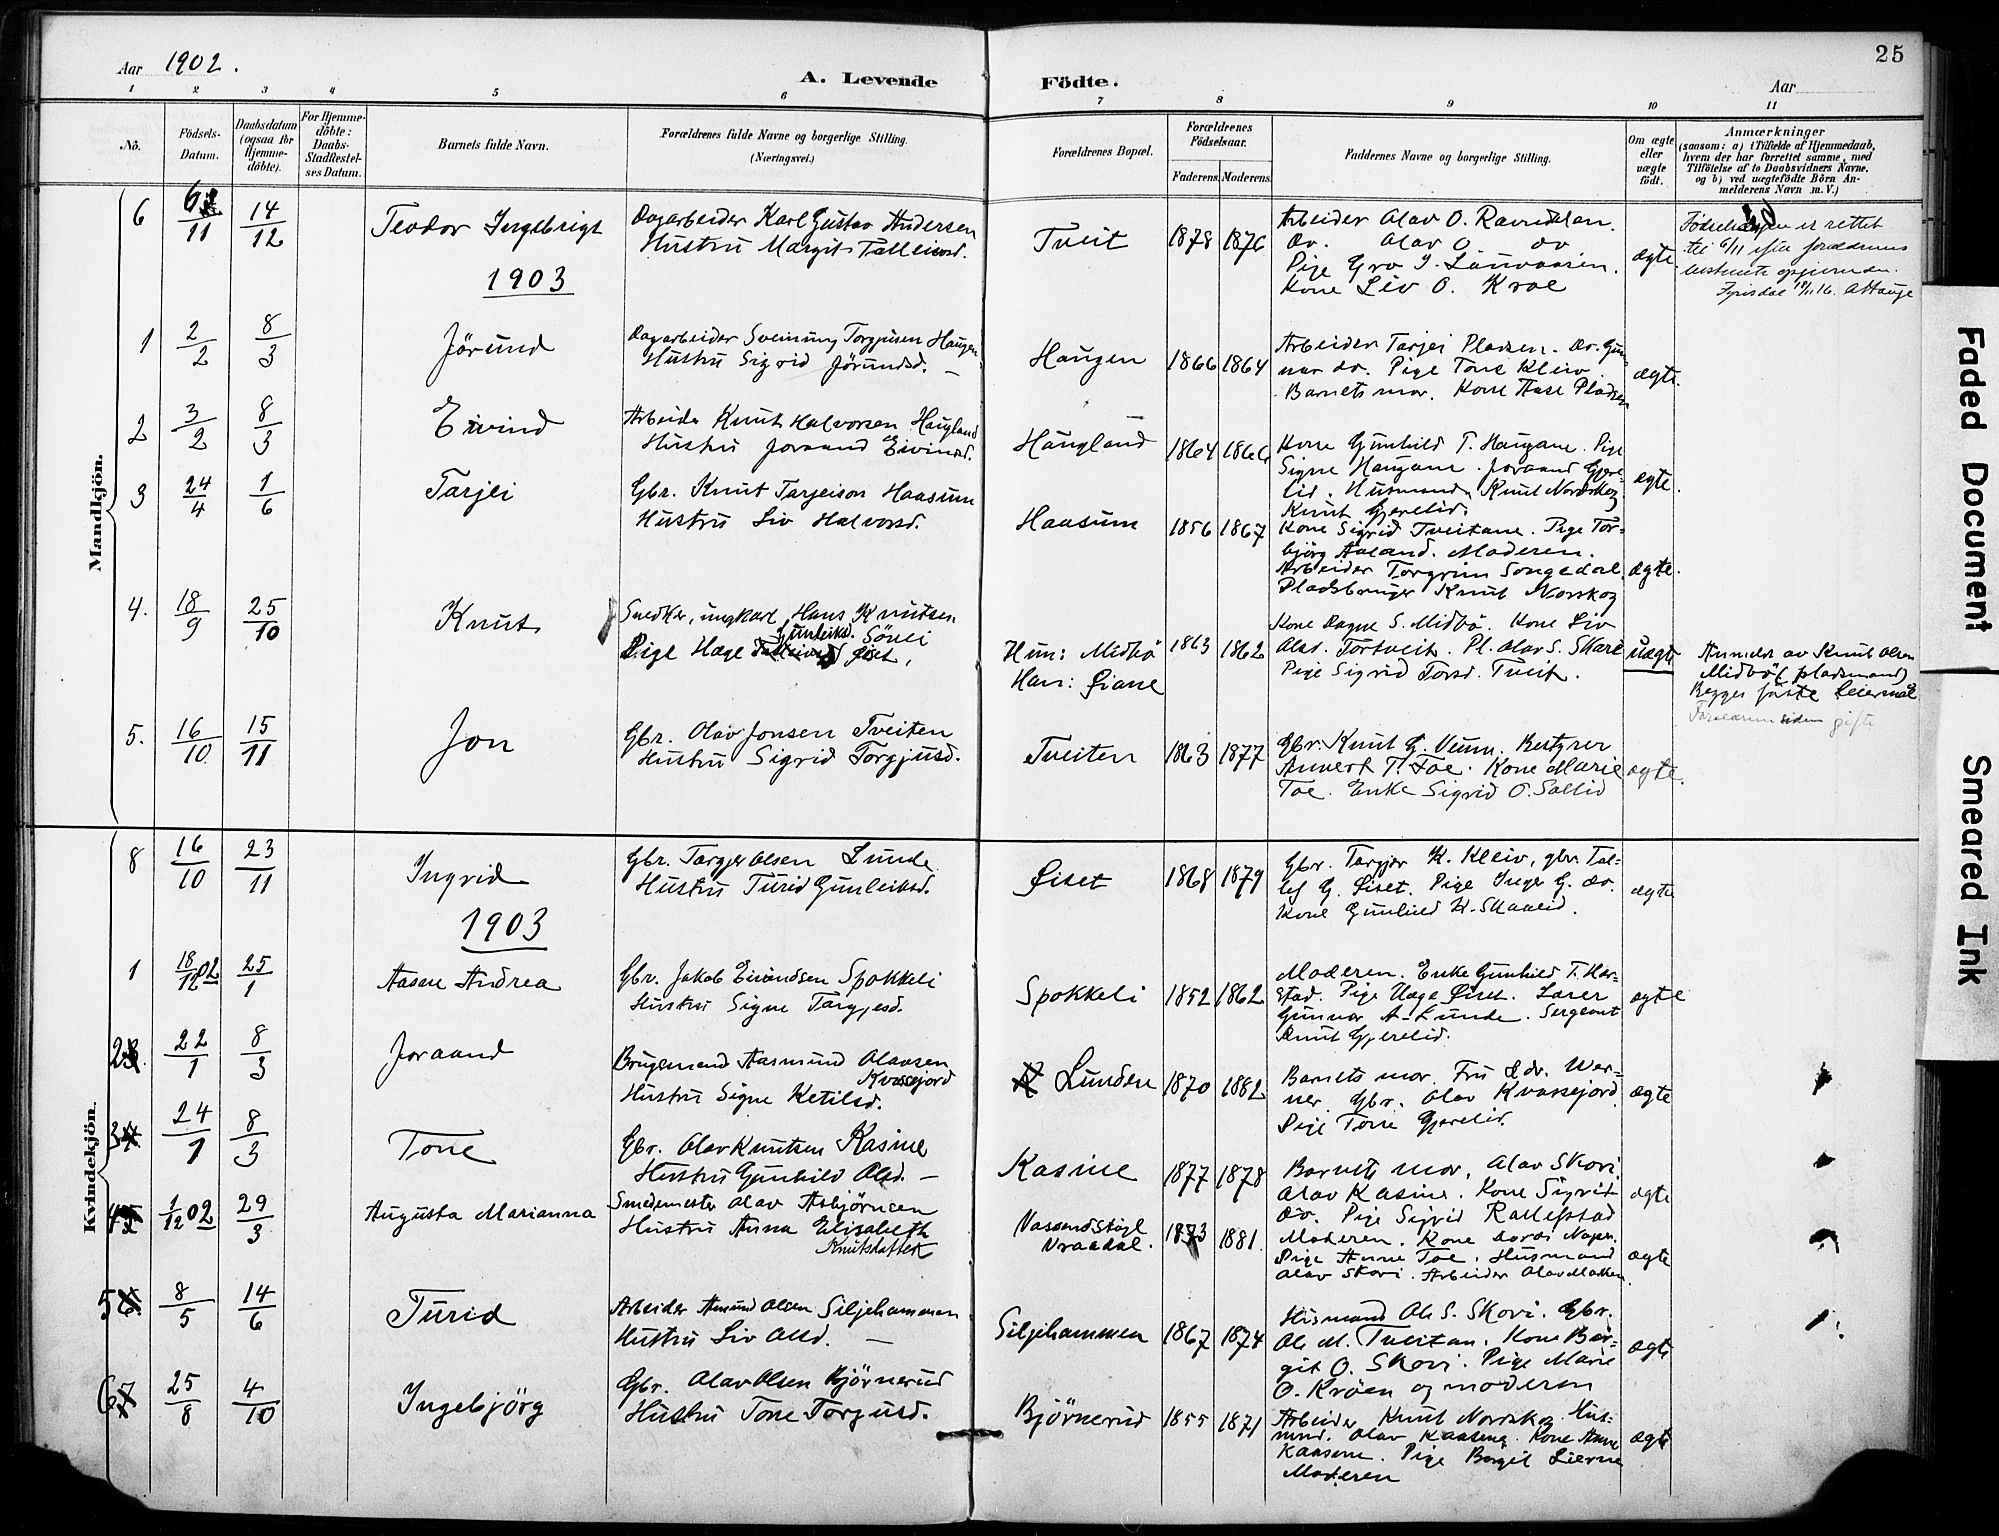 25
Aar 1902.
A. Levende Födte.
Aar
1 2 3 4 5 6 7 8 9 10 11
No.
Födsels-Datum.
Daabsdatum (ogsaa for Hjemme-döbte).
For Hjemme-döbte: Daabs-Stadfæstel-ses Datum.
Barnets fulde Navn.
Forældrenes fulde Navne og borgerlige Stilling.
(Næringsvei.)
Forældrenes Bopæl.
Forældrenes Födselsaar.
Faderens. Moderens.
Faddernes Navne og borgerlige Stilling.
Om ægte eller uægte födt.
Anmærkninger
(saasom: a) i Tilfælde af Hjemmedaab, hvem der har forrettet samme, med Tilföielse af to Daabsvidners Navne, og b) ved uægtefödte Börn An-melderens Navn m. V.)
Mandkjön.
6 6/11 14/12 Teodor Ingebrigt
Dagarbeider Karl Gustav Andersen
Hustru Margit Talleivsd.
Tveit 1878 1876
Arbeider Olav O.
Do. Olav O. do
Pige Gro
Kone Liv O. Kroe
ægte.
er rettet
til 6/11 efter forældrenes
1903
1 2/2 8/3 Jörund
Dagarbeider Sveinung Torgjusen Haugen
Hustru Sigrid Jörundsd. —
Haugen 1866 1864
Arbeider Tarjei Pladsen. Do. Gun-
nar do. Pige Tone Kleiv.
Barnets mor. Kone Aase Pladsen
ægte.
2 3/2 8/3 Eivind
Arbeider Knut Halvorsen Haugland
Hustru Joraand Eivindsd.
Haugland 1864 1866
Kone Gunhild T. Haugane. Pige
Signe Haugane. Joraand Gjere-
lid. Husmand Knut Nordskog
Knut Gjerelid.
ægte.
3 24/4 1/6 Tarjei
Gbr. Knut Tarjeison Haasum
Hustru Liv Halvorsd.
Haasum 1856 1867
Kone Sigrid Tveitane. Pige Tor-
björg Aaland. Moderen.
Arbeider Torgrim Songedal
Pladsbruger Knut Norskog
ægte.
4. 18/9 25/10 Knut
Snedker, ungkarl, Hans Knutsen
Pige Hæge Gunleiksd. Öiset,
Hun: Midbö
Han: Öiane
1863 1862
Kone Dagne S. Midbö. Kone Liv
Olsd. Tortveit. Pl. Olav S. Skare
Pige Sigrid Torsd. Tveit.
uægte
Anmeldt av Knut Olsen
Midbö (pladsmand)
Begges förste leiermål
Forældrene siden gifte
5. 16/10 15/11 Jon
Gbr. Olav Jonsen Tveiten
Hustru Sigrid Torgjusd.
Tveiten 1863 1877
Gbr. Knut G. Veum. Bestyrer
Annert T. Foe. Kone Marie
Foe. Enke Sigrid O.
ægte.
Kvindekjön.
8 16/10 23/11 Ingrid
Gbr. Targjer Olsen Lunde
Hustru Turid Gunleiksd.
Öiset 1868 1879
Gbr. Targjer K. Kleiv, gbr. Tal-
lef G. Öiset. Pige Inger G. do.
Kone Gunhild K. Skaalid.
ægte
1903
1 18/12 02 25/1 Aasne Andrea
Gbr. Jakob Eivindsen Spokkeli
Hustru Signe Targjesd.
Spokkeli 1852 1862
Moderen. Enke Gunhild T. Har-
stad. Pige Hæge Öiset. Lærer
Gunnar A. Lunde. Sergeant
Knut Gjerelid.
ægte
2 22/1 8/3 Joraand
Brugsmand Aasmund Olavsen
Kvassejord
Hustru Signe Ketilsd.
Lunden 1870 1882
Barnets mor. Fru Wer-
ner. Gbr. Olav Kvassejord
Pige Tone Gjerelid.
ægte
3 24/1 8/3 Tone
Gbr. Olav Knutsen Kasine
Hustru Gunhild Olsd. —
Kasine 1877 1878
Barnets mor. Olav Skovi
Olav Kasine. Kone Sigrid
do. Pige Sigrid Rallefstad
ægte
4 1/12 02 29/3 Augusta Marianna
Smedemester Olav Asbjörnsen
Hustru Anna Elisabeth
Knutsdatter
Vraadal.
1873 1881
Moderen. Kone
Pige Anne Foe. Husmand
Olav Skovi. Arbeider
ægte
5 8/5 14/6 Turid
Arbeider Amund Olsen Siljehammen
Hustru Liv Olsd. —
Siljehammen 1867 1874
Husmand Ole S. Skovi. Gbr.
Ole M. Tveitan. Kone Ber-
git O. Skovi. Pige Marie
O. Kröen og moderen
ægte
6 25/8 4/10 Ingebjörg
Gbr. Olav Olsen Björnerud
Hustru Tone Torjusd.
Björnerud 1855 1871
Arbeider Knut Nordskog. Hus-
mnd. Olav Kaasene. Kone Anne
Kaasene. Pige Bergit Lierne
Moderen
ægte
Faded Document
Smeared Ink